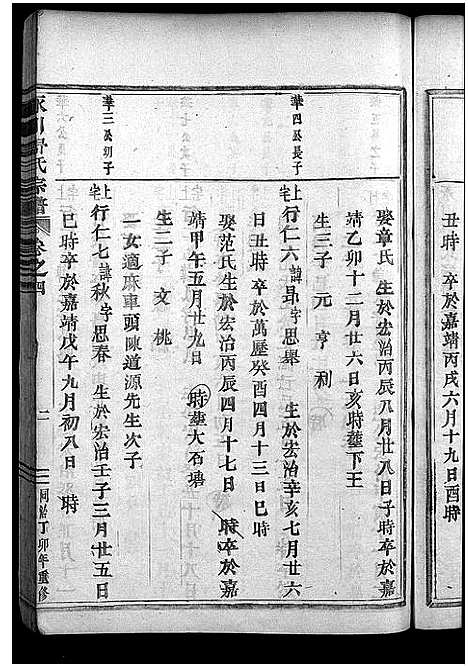 丑時 卒於嘉靖丙戌六月十九日酉時
娶章氏 生於宏治丙辰八月廿八日子時卒於嘉
靖乙卯十二月廿六日亥時塟下王
生三子 元 亨 利
華四公長子
上宅 行仁六 諱昻 字思舉 生於宏治辛亥七月廿六
日丑時 卒於萬歷癸酉四月十三日巳時
娶范氏生於宏治丙辰四月十七日 時卒於嘉
靖甲午五月廿九日 時塟大石塘
生二子 文 桃
一女適麻車頭陳道源先生次子
華三公初子
上宅 行仁七 諱秋 字思春 生於宏治壬子三月廿五日
巳時卒於嘉靖戊午九月初八日 時
氏宗譜 卷之四
二
同治丁卯年重修